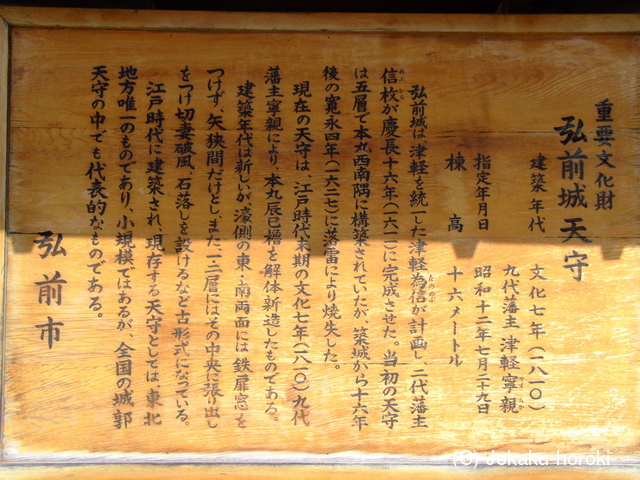 重要文化財
弘前城天守
建築年代 文化七年(一八一〇)
九代藩主 津軽寧親
やすちか
指定年月日 昭和十二年七月二十九日
棟高 十六メートル
弘前城は津軽を統一した津軽為信が計画し、二代藩主
ためのぶ
信枚が慶長十六年(一六一一)に完成させた。当初の天守
のぶひら
は五層で本丸西南隅に構築されていたが、築城から十六年
後の寛永四年(一六二七)に落雷により焼失した。
現在の天守は、江戸時代末期の文化七年(一八一〇)九代
藩主寧親により、本丸辰巳櫓を解体新造したものである。
建築年代は新しいが、濠側の東・南両面には鉄扉窓を
つけず、矢狭間だけとし、また、一・二層にはその中央に張り出し
をつけ切妻破風、石落しを設けるなど古形式になっている。
江戸時代に建築され、現存する天守としては、東北
地方唯一のものであり、小規模ではあるが、全国の城郭
天守の中でも代表的なものである。
弘前市
(C) Jokaku horoki